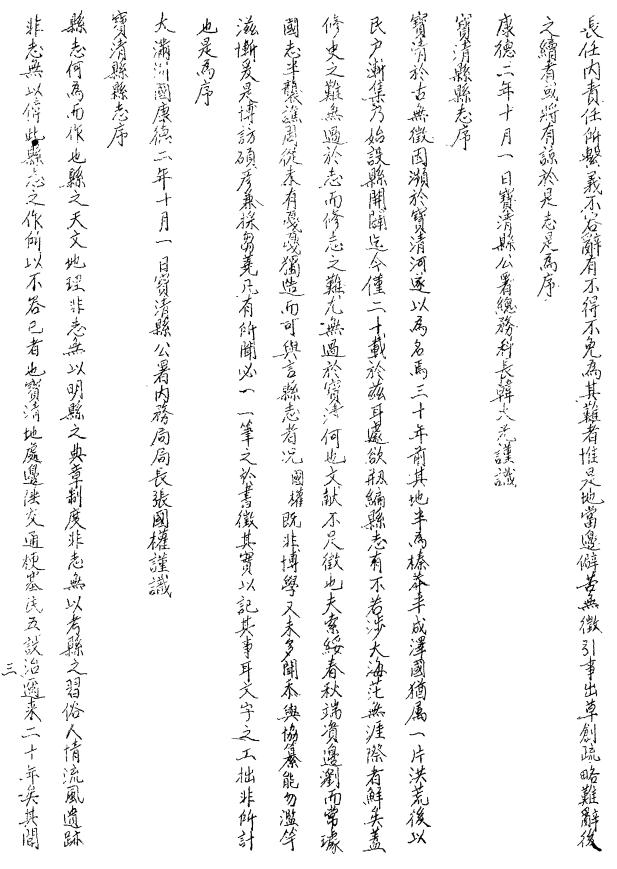 長任內責任所繫義不容辭有不得不勉為其難者惟是地當邊僻苦無徵引事出草創疏略難辭後
之續者或將有諒於是志是為序
康德二年十月一日寶清縣公署總務科長韓大光謹識
寶清縣縣志序
寶清於古無徵因瀕於寶清河遂以為名焉三十年前其地半為榛莽半成澤國猶屬一片洪荒後以
民戶漸集乃始設縣開闢迄今僅二十載於茲耳遽欲剏編縣志有不若涉大海茫無涯際者鮮矣蓋
修史之難無過於志而修志之難尤無過於寶清何也文献不足徵也夫索綏春秋端資邊瀏而常璩
國志半襲譙周從未有戞戞獨造而可與言縣志者况國權既非博學又未多聞忝與協纂能勿濫竽
滋慚爰是博訪碩彥兼採芻蕘凡有所聞必一一筆之於書徵其實以記其事耳文字之工拙非所計
也是為序
大滿洲國康德二年十月一日寶清縣公署內務局局長張國權謹識
寶清縣縣志序
縣志何為而作也縣之天文地理非志無以明縣之典章制度非志無以考縣之習俗人情流風遺跡
非志無以傳此縣志之作所以不容已者也寶清地處邊陲交通梗塞民五設治邇來二十年矣其間
三